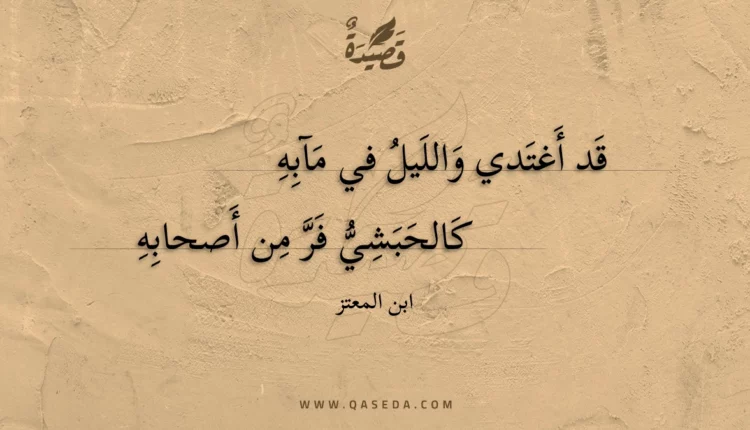 قَصِيدَةٌ
قَد أَغتَدي وَاللَيلُ في مَآبِهِ
كَالحَبَشِيُّ فَرَّ مِن أَصحابِهِ
ابن المعتز
WWW.QASEDA.COM